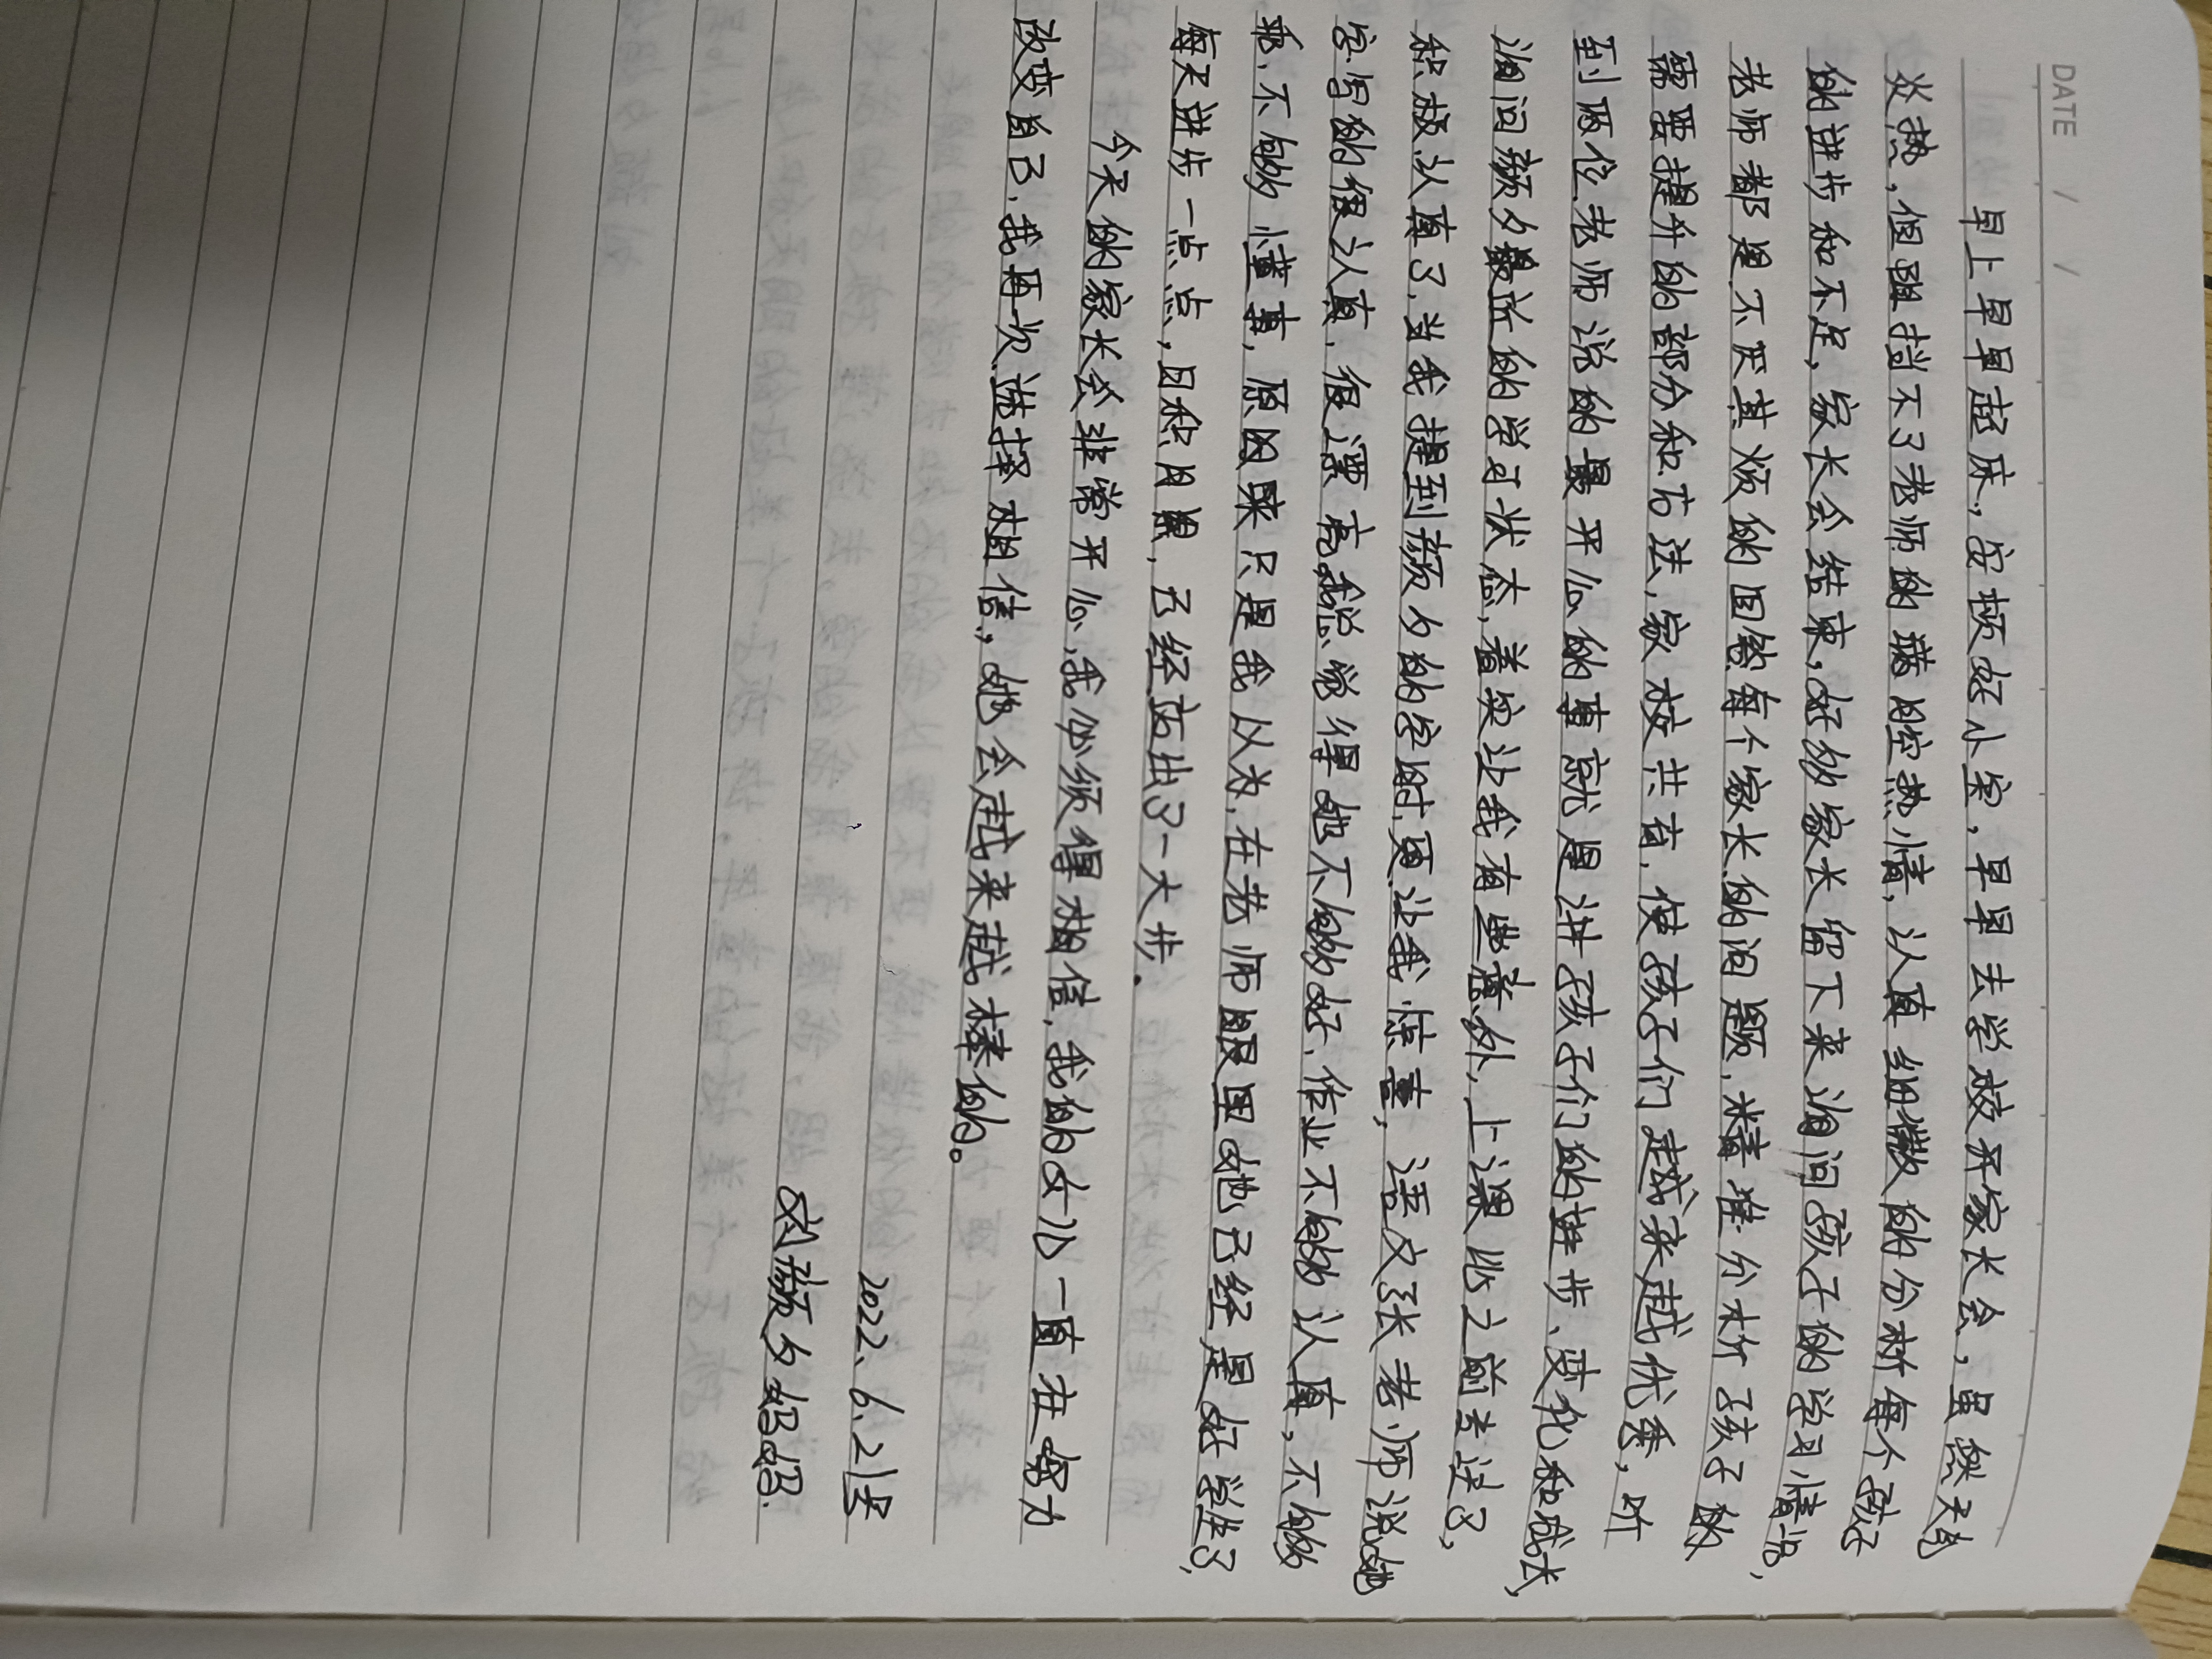 DATE / /
早上早早起床,安顿好小宝,早早去学校开家长会,虽然天气
炎热,但阻挡不了老师的满腔热情,认真细微的分析每个孩子
的进步和不足,家长会结束,好多家长留下来询问孩子的学习情况,
老师都是不厌其烦的回答每个家长的问题,精准分析孩子的
需要提升的部分和方法,家校共育,使孩子们越来越优秀,听
到两位老师说的最开心的事就是讲孩子们的进步、变化和成长,
询问颜夕最近的学习状态,着实让我有些意外,上课比之前专注了,
积极认真了,当我提到颜夕的字时,更让我惊喜,语文张老师说她
字写的很认真,很漂亮,我总觉得她不够好,作业不够认真,不够
乖,不够懂事,原因来只是我以为,在老师眼里她已经是好学生了,
每天进步一点点,日积月累,已经迈出了一大步.
今天的家长会非常开心,我必须得相信,我的女儿一直在努力
改变自己,我再次选择相信,她会越来越棒的。
2022、6、21号
刘颜夕妈妈.